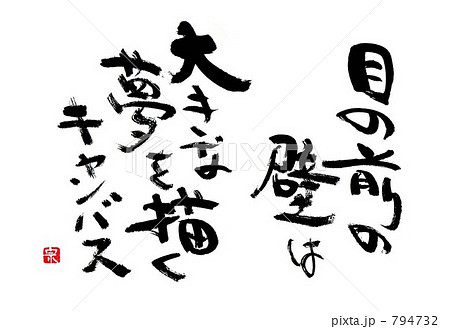 目の前の
壁は
大きな
夢を描く
キャンバス
宗
PIXTA
pixta.jp - 794732